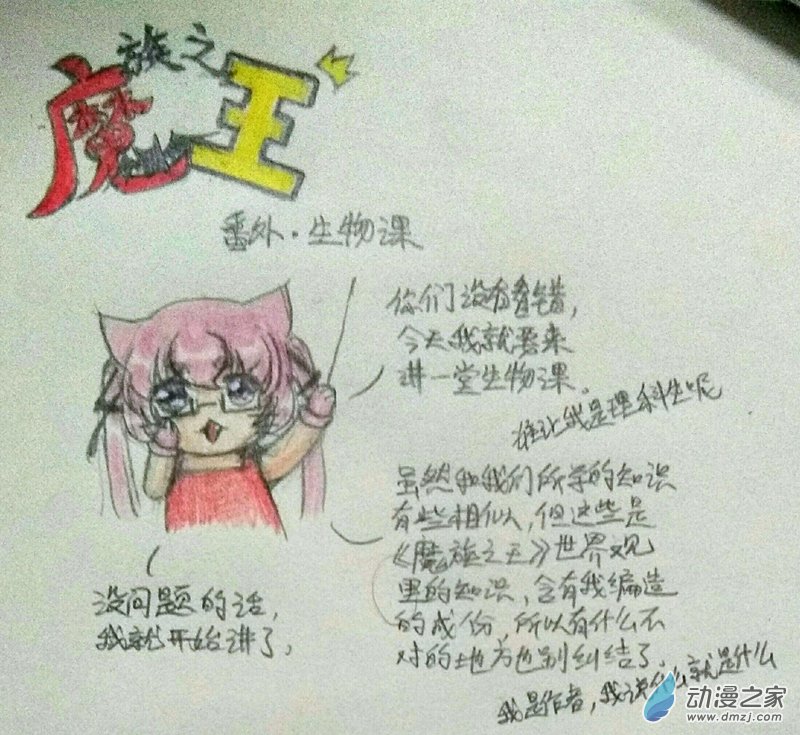 魔族之王
番外·生物课
你们没有看错,
今天我就要来
讲一堂生物课。
谁让我是理科生呢
虽然和我们所学的知识
有些相似,但这些是
《魔族之王》世界观
里的知识,含有我编造
的成份,所以有什么不
对的地方也别纠结了。
我是作者,我说什么就是什么
没问题的话,
我就开始讲了。
动漫之家
www.dmzj.com